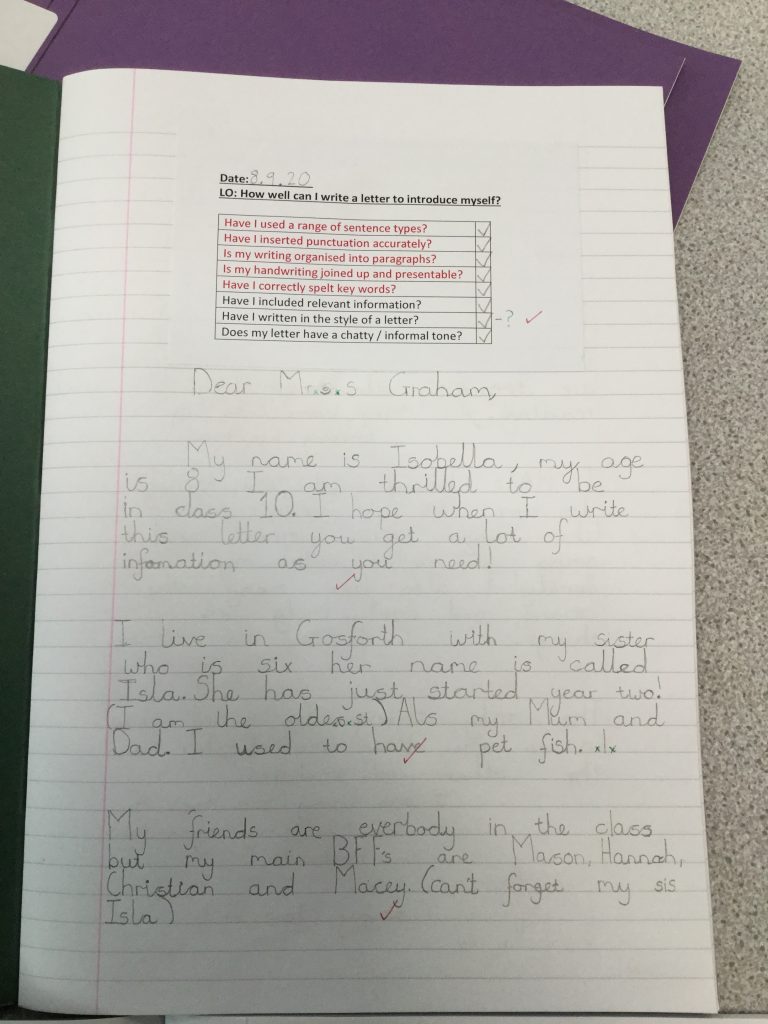 Date: 8.9.20
LO: How well can I write a letter to introduce myself?
Have I used a range of sentence types? ✓
Have I inserted punctuation accurately? ✓
Is my writing organised into paragraphs? ✓
Is my handwriting joined up and presentable? ✓
Have I correctly spelt key words? ✓
Have I included relevant information? ✓
Have I written in the style of a letter? ✓ -? ✓
Does my letter have a chatty / informal tone? ✓
Dear Mr.s.s Graham,
My name is Isobella, my age
is 8 I am thrilled to be
in class 10. I hope when I write
this letter you get a lot of
infomation as you need!
I live in Gosforth with my sister
who is six her name is called
Isla. She has just started year two!
(I am the oldest) Als my Mum and
Dad. I used to have pet fish.
My friends are everbody in the class
but my main BFF's are Mason, Hannah,
Christian and Macey. (can't forget my sis
Isla)